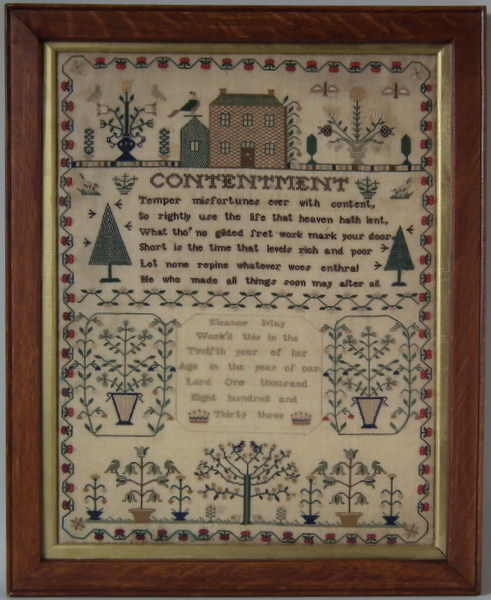 CONTENTMENT
Temper misfortunes ever with content,
So rightly use the life that heaven hath lent,
What tho' no gilded fret work mark your door
Short is the time that levels rich and poor
Let none repine whatever woes enthral
He who made all things soon may alter all
Eleanor May
Work'd this in the
Twelfth year of her
Age in the year of our
Lord One thousand
Eight hundred and
Thirty three